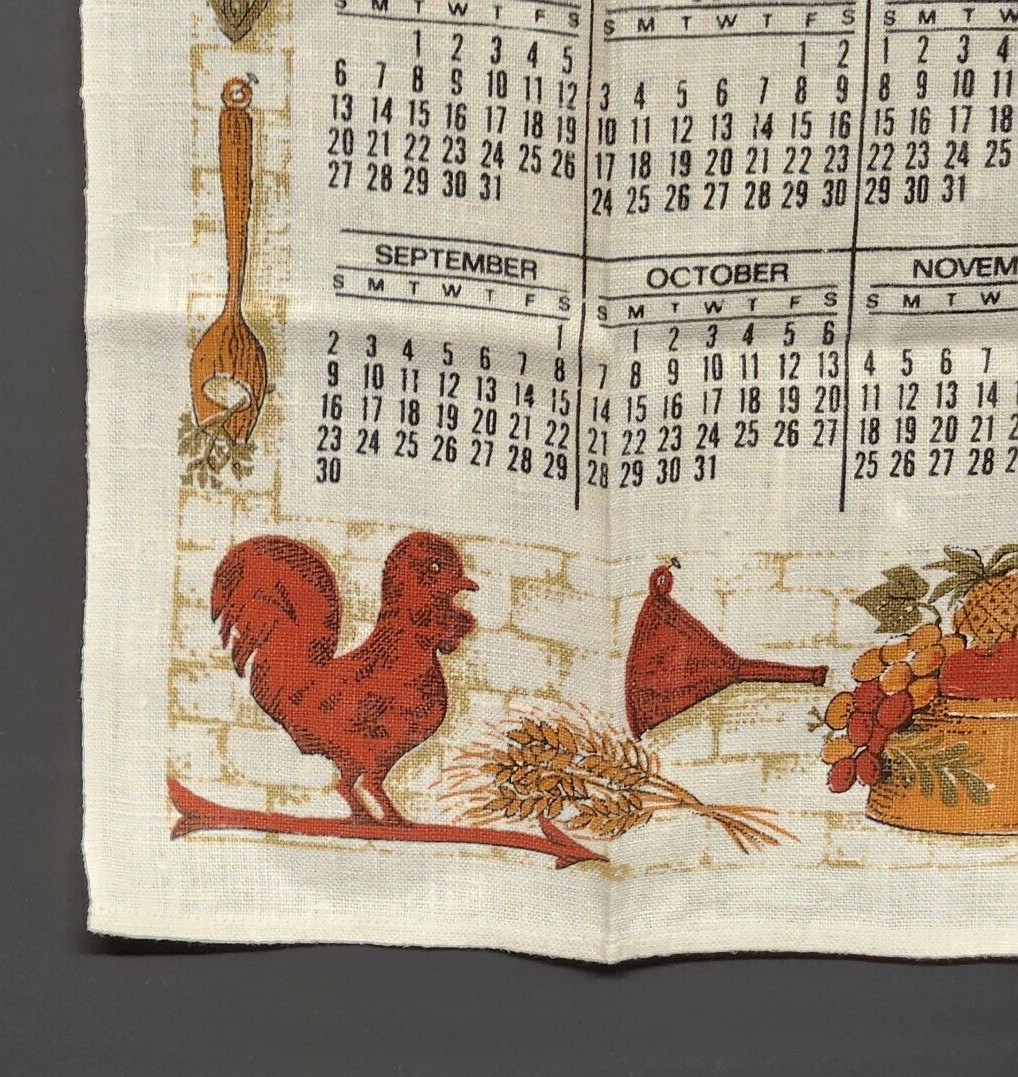 S M T W T F S
1 2 3 4 5
6 7 8 9 10 11 12
13 14 15 16 17 18 19
20 21 22 23 24 25 26
27 28 29 30 31
S M T W T F S
1 2
3 4 5 6 7 8 9
10 11 12 13 14 15 16
17 18 19 20 21 22 23
24 25 26 27 28 29 30
S M T W
1 2 3 4
8 9 10 11
15 16 17 18
22 23 24 25
29 30 31
SEPTEMBER
S M T W T F S
1
2 3 4 5 6 7 8
9 10 11 12 13 14 15
16 17 18 19 20 21 22
23 24 25 26 27 28 29
30
OCTOBER
S M T W T F S
1 2 3 4 5 6
7 8 9 10 11 12 13
14 15 16 17 18 19 20
21 22 23 24 25 26 27
28 29 30 31
NOVEM
S M T W
4 5 6 7
11 12 13 14
18 19 20 21 2
25 26 27 28 2